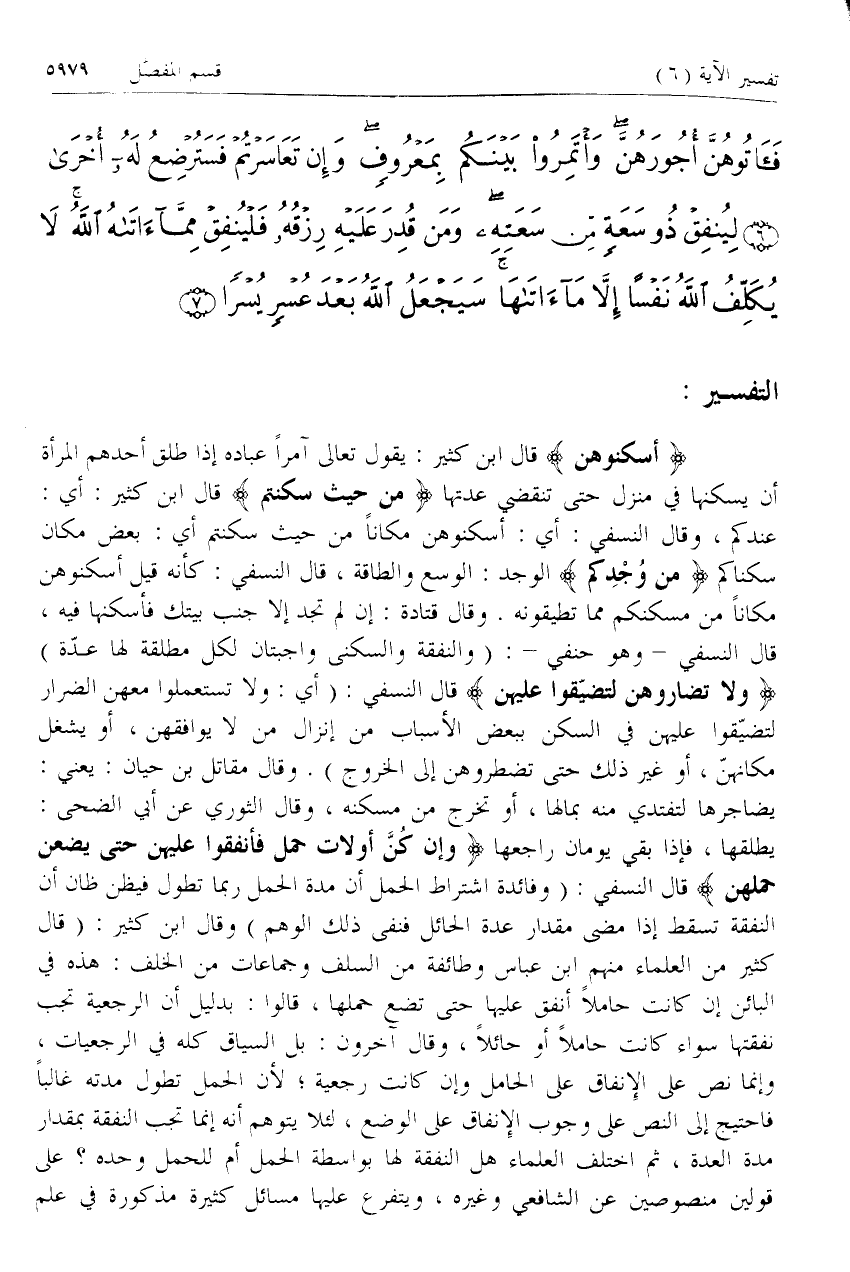 تفسير الآية (٦) قسم المفصّل ٥٩٧٩
فَـَٔاتُوهُنَّ أُجُورَهُنَّ ۖ وَأْتَمِرُوا۟ بَيْنَكُم بِمَعْرُوفٍ ۖ وَإِن تَعَاسَرْتُمْ فَسَتُرْضِعُ لَهُۥٓ أُخْرَىٰ
﴿٦﴾ لِيُنفِقْ ذُو سَعَةٍ مِّن سَعَتِهِۦ ۖ وَمَن قُدِرَ عَلَيْهِ رِزْقُهُۥ فَلْيُنفِقْ مِمَّآ ءَاتَىٰهُ ٱللَّهُ ۚ لَا
يُكَلِّفُ ٱللَّهُ نَفْسًا إِلَّا مَآ ءَاتَىٰهَا ۚ سَيَجْعَلُ ٱللَّهُ بَعْدَ عُسْرٍ يُسْرًا ﴿٧﴾
التفسير :
﴿ أسكنوهن ﴾ قال ابن كثير : يقول تعالى آمراً عباده إذا طلق أحدهم المرأة
أن يسكنها في منزل حتى تنقضي عدتها ﴿ من حيث سكنتم ﴾ قال ابن كثير : أي :
عندكم ، وقال النسفي : أي : أسكنوهن مكاناً من حيث سكنتم أي : بعض مكان
سكناكم ﴿ من وُجْدِكم ﴾ الوجد : الوسع والطاقة ، قال النسفي : كأنه قيل أسكنوهن
مكاناً من مسكنكم مما تطيقونه . وقال قتادة : إن لم تجد إلا جنب بيتك فأسكنها فيه ،
قال النسفي – وهو حنفي – : ( والنفقة والسكنى واجبتان لكل مطلقة لها عدّة )
﴿ ولا تضاروهن لتضيّقوا عليهن ﴾ قال النسفي : ( أي : ولا تستعملوا معهن الضرار
لتضيّقوا عليهن في السكن ببعض الأسباب من إنزال من لا يوافقهن ، أو يشغل
مكانهنّ ، أو غير ذلك حتى تضطروهن إلى الخروج ) . وقال مقاتل بن حيان : يعني :
يضاجرها لتفتدي منه بمالها ، أو تخرج من مسكنه ، وقال الثوري عن أبي الضحى :
يطلقها ، فإذا بقي يومان راجعها ﴿ وإن كُنَّ أولات حمل فأنفقوا عليهن حتى يضعن
حملهن ﴾ قال النسفي : ( وفائدة اشتراط الحمل أن مدة الحمل ربما تطول فيظن ظان أن
النفقة تسقط إذا مضى مقدار عدة الحائل فنفى ذلك الوهم ) وقال ابن كثير : ( قال
كثير من العلماء منهم ابن عباس وطائفة من السلف وجماعات من الخلف : هذه في
البائن إن كانت حاملاً أنفق عليها حتى تضع حملها ، قالوا : بدليل أن الرجعية تجب
نفقتها سواء كانت حاملاً أو حائلاً ، وقال آخرون : بل السياق كله في الرجعيات ،
وإنما نص على الإنفاق على الحامل وإن كانت رجعية ؛ لأن الحمل تطول مدته غالباً
فاحتيج إلى النص على وجوب الإنفاق على الوضع ، لئلا يتوهم أنه إنما تجب النفقة بمقدار
مدة العدة ، ثم اختلف العلماء هل النفقة لها بواسطة الحمل أم للحمل وحده ؟ على
قولين منصوصين عن الشافعي وغيره ، ويتفرع عليها مسائل كثيرة مذكورة في علم